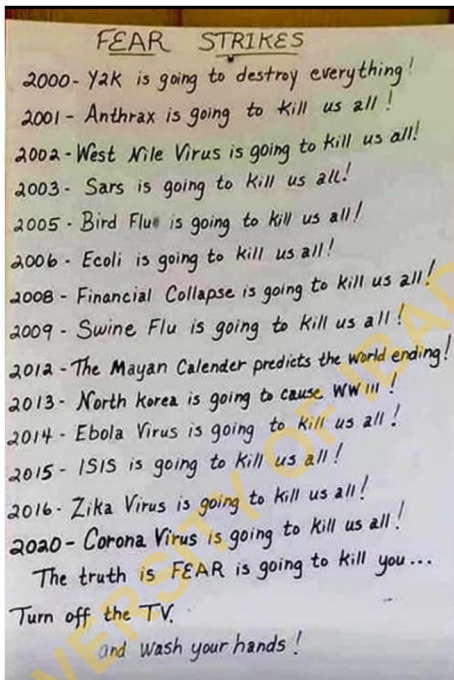 FEAR STRIKES
2000- Y2K is going to destroy everything!
2001- Anthrax is going to kill us all!
2002-West Nile Virus is going to kill us all!
2003- Sars is going to kill us all!
2005- Bird Flu is going to kill us all!
2006- Ecoli is going to kill us all!
2008- Financial Collapse is going to kill us all!
2009- Swine Flu is going to kill us all!
2012-The Mayan Calender predicts the world ending!
2013- North korea is going to cause WW III!
2014- Ebola Virus is going to kill us all!
2015- ISIS is going to kill us all!
2016- Zika Virus is going to kill us all!
2020- Corona Virus is going to kill us all!
The truth is FEAR is going to kill you...
Turn off the TV.
and wash your hands!
VERSITY OF IBAD